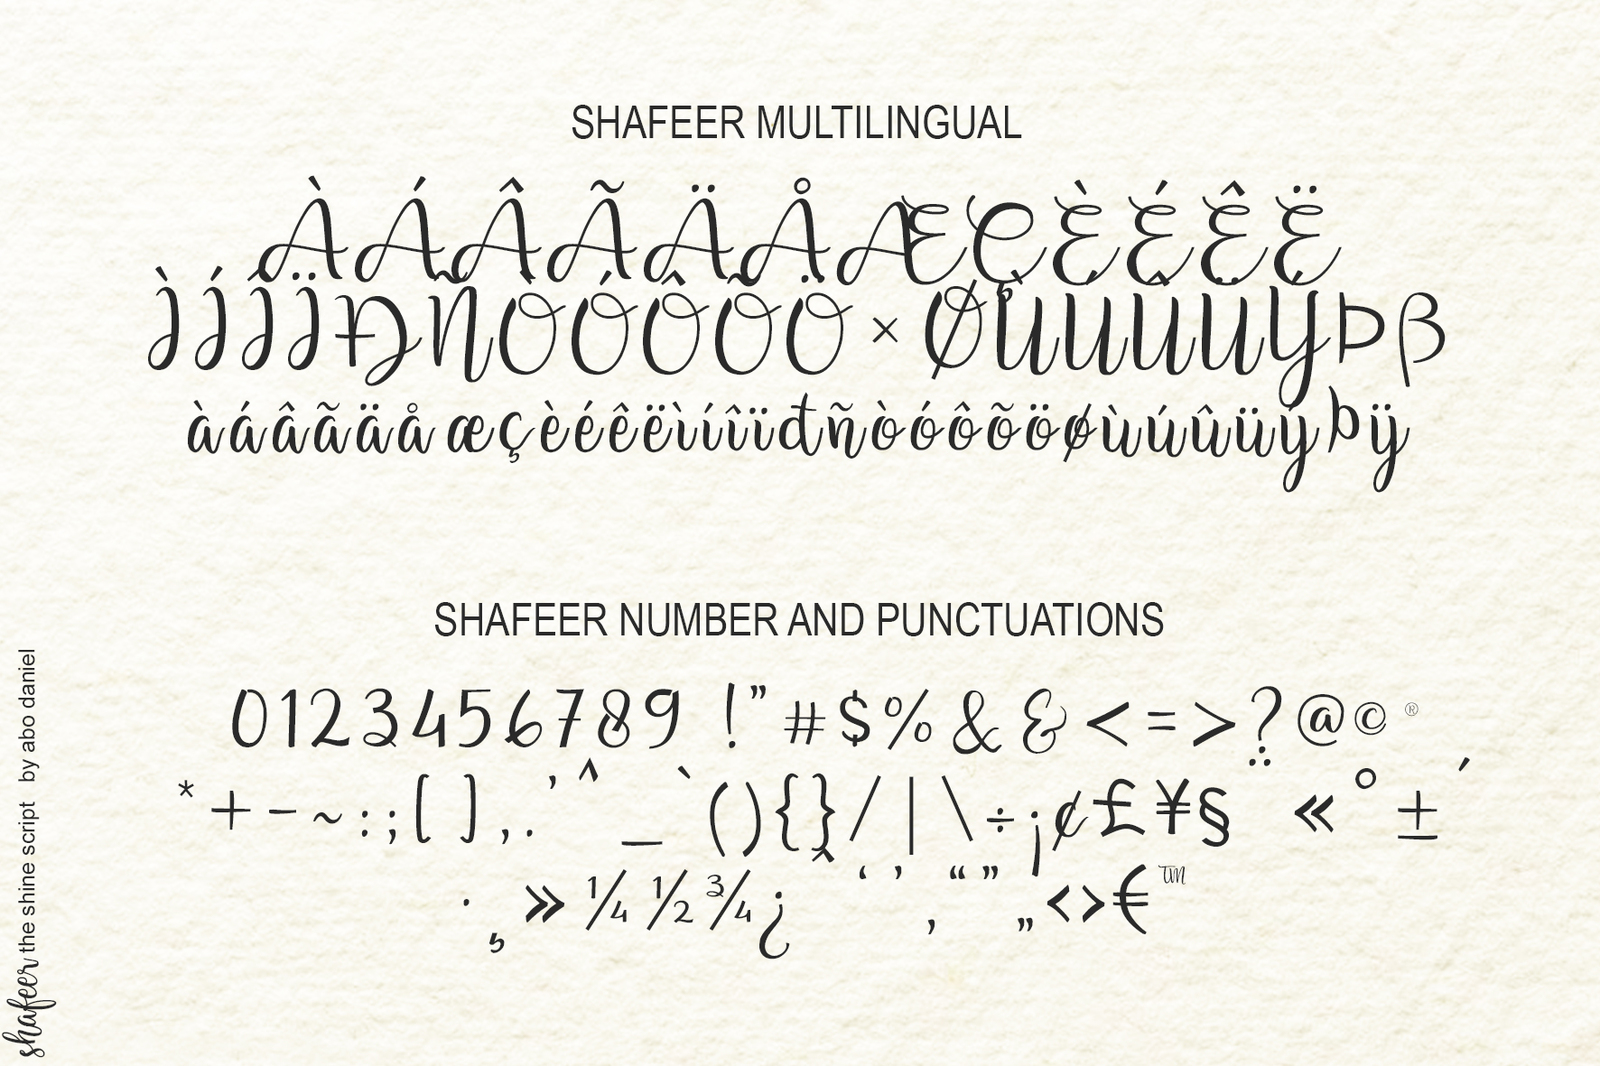 SHAFEER MULTILINGUAL
ÀÁÂÃÄÅÆÇÈÉÊË
ÌÍÎÏÐÑÒÓÔÕÖ×ØÙÚÛÜÝÞß
àáâãäåæçèéêëìíîïđñòóôõöøùúûüýþÿ
SHAFEER NUMBER AND PUNCTUATIONS
0123456789 !"#$%&&<=>?@©®
*+-~:;[],.'^_`(){}/|\÷¡¢£¥§¨«°±´
·¸»¼½¾¿ˆ‘’‚“”„‹›€™
shafeer the shine script by abo daniel